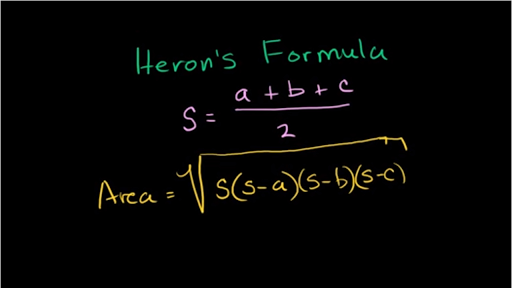 Heron's Formula
S = a + b + c / 2
Area = √S(s-a)(s-b)(s-c)